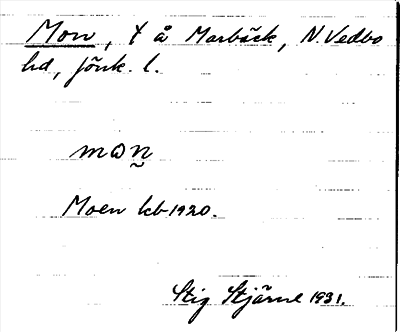 Mon, t å Marbäck, N. Vedbo
hd, Jönk. l.
mɷn̰
Moen kb 1920.
Stig Stjärne 1931.